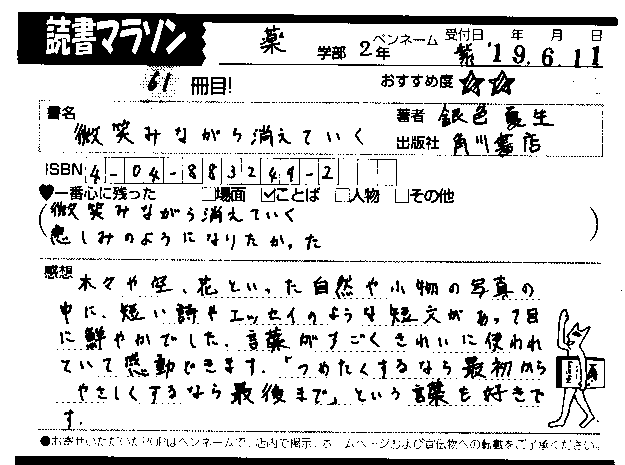 読書マラソン
薬 学部 2年 ペンネーム 紫 受付日 '19年 6月 11日
61 冊目! おすすめ度 ☆☆
書名 微笑みながら消えていく
著者 銀色夏生
出版社 角川書店
ISBN 4-04-883249-2
♥一番心に残った □場面 ☑ことば □人物 □その他
(微笑みながら消えていく
悲しみのようになりたかった)
感想 木々や空、花といった自然や小物の写真の
中に、短い詩やエッセイのような短文があって目
に鮮やかでした。言葉がすごくきれいに使われ
ていて感動できます。「つめたくするなら最初から
やさしくするなら最後まで」という言葉も好きで
す。
●お寄せいただいたPOPはペンネームで、店内で掲示、ホームページおよび宣伝物への転載をご了承ください。